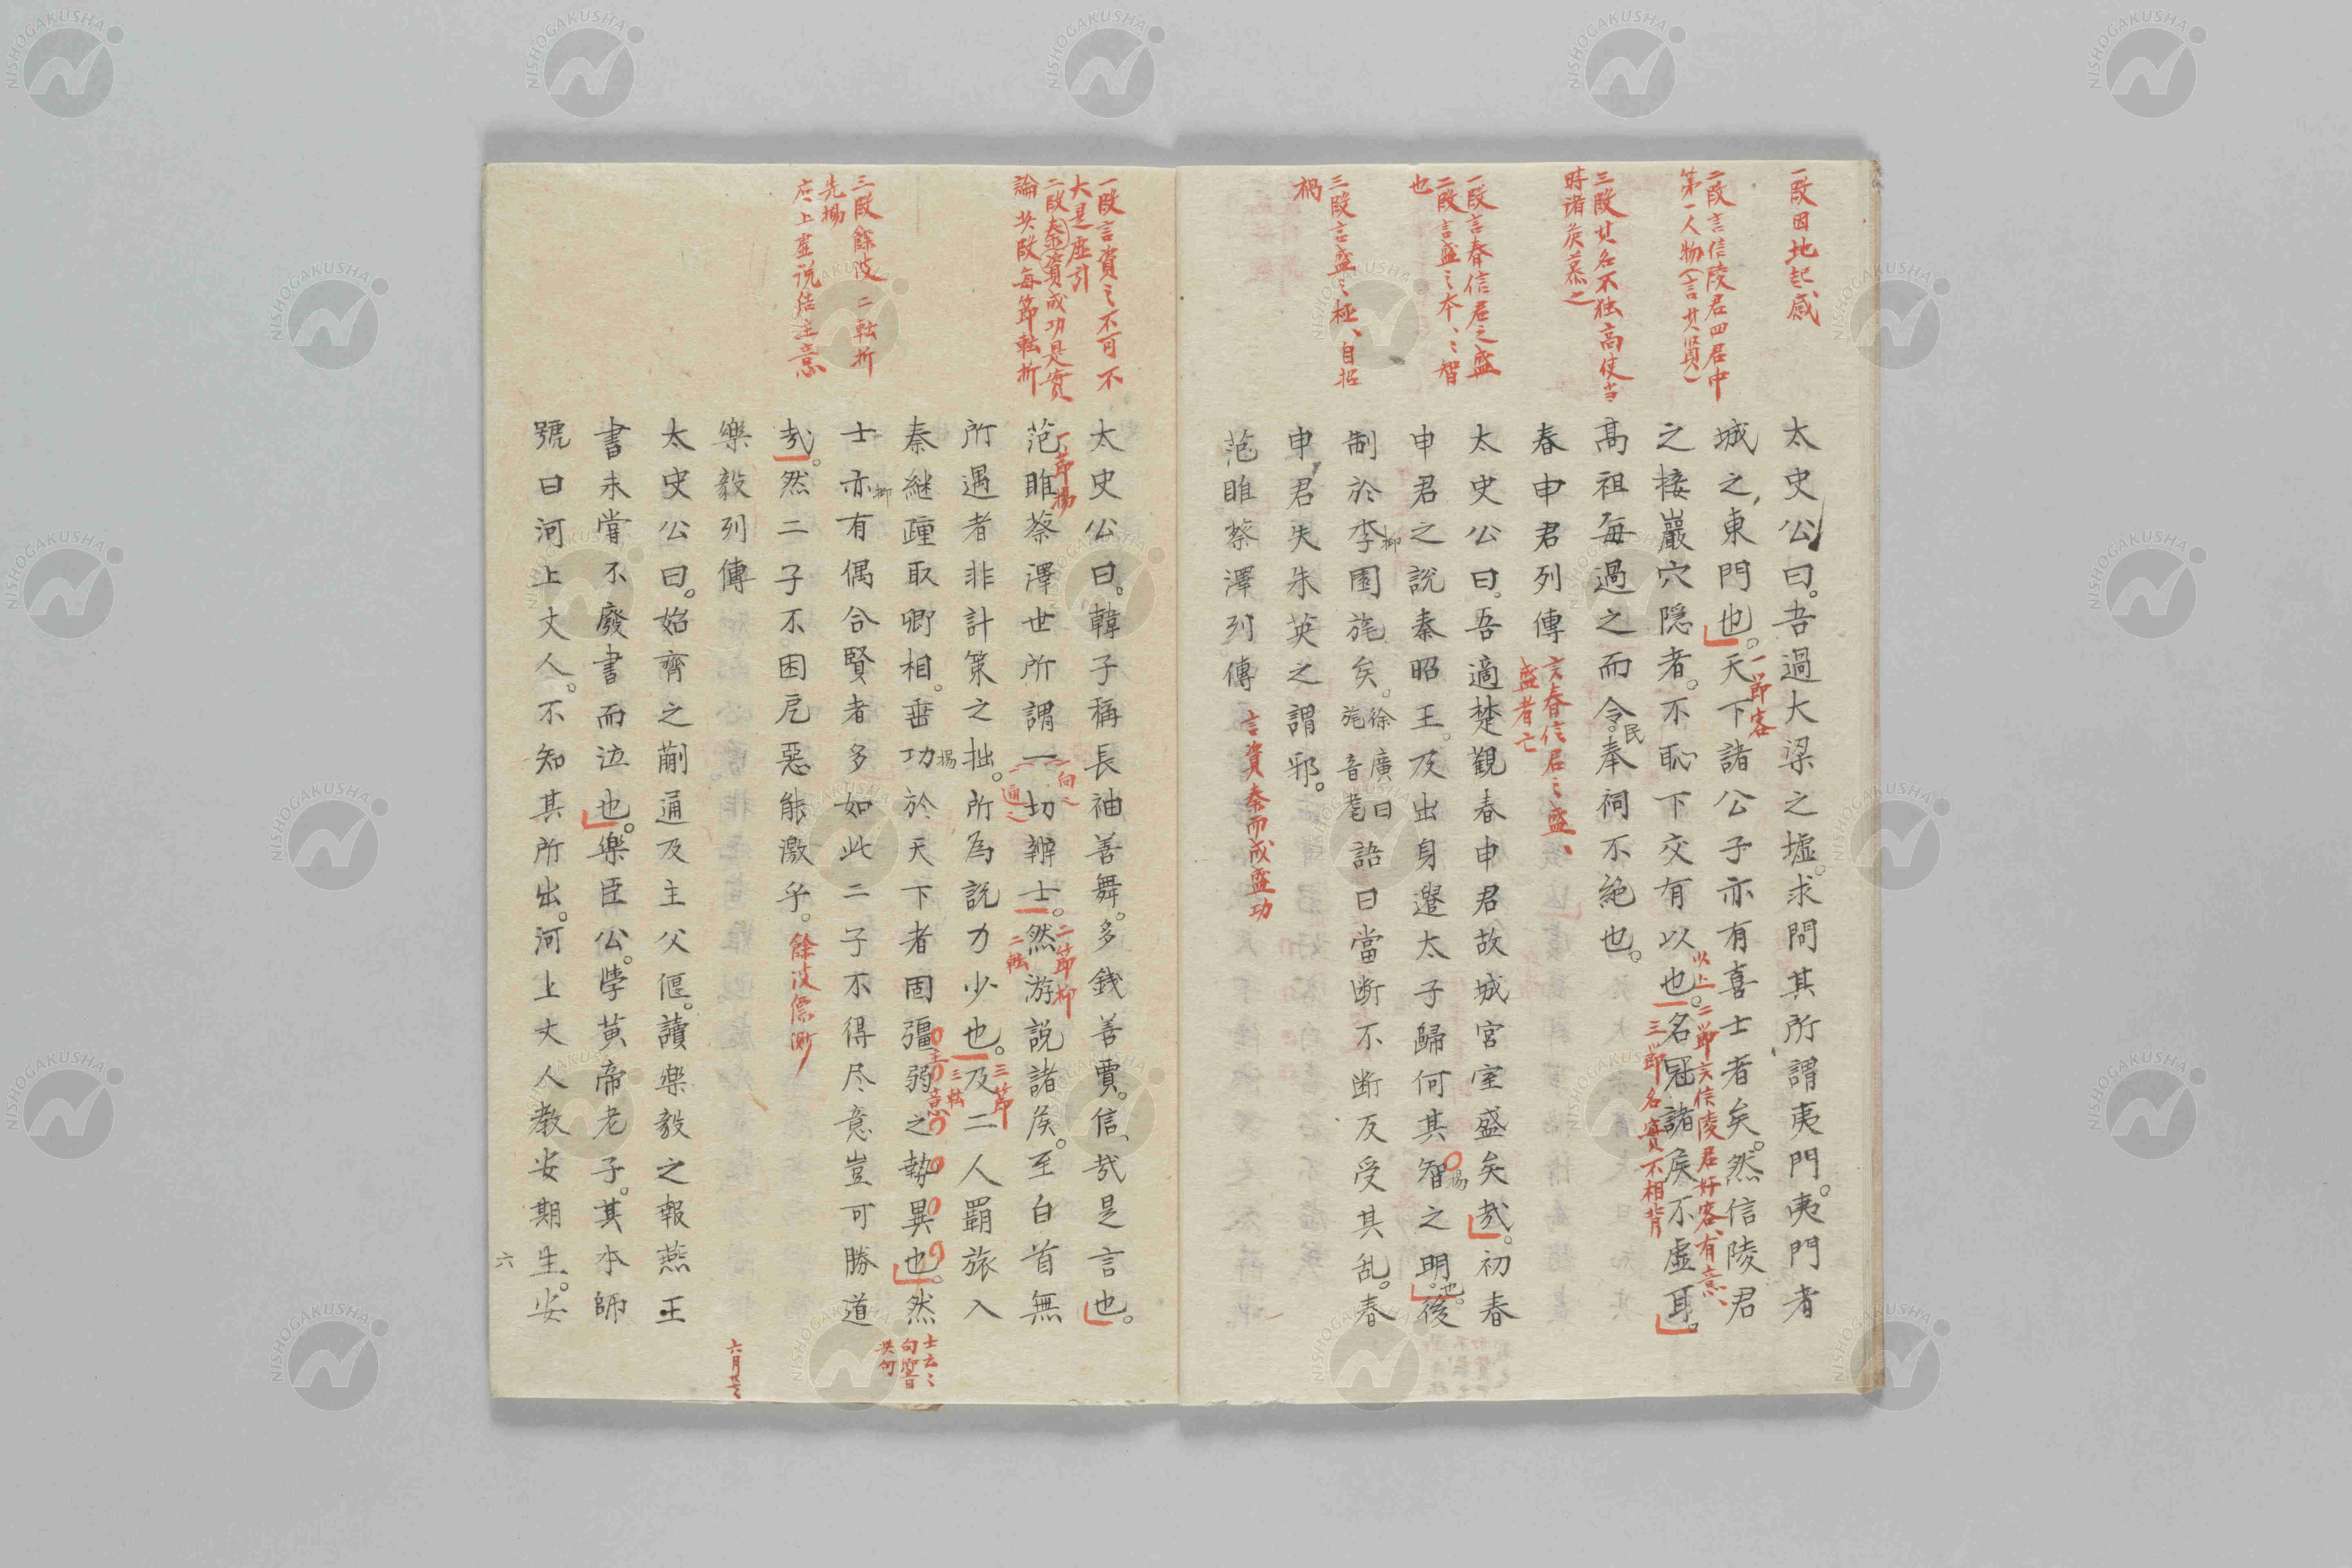 一段因地起感
二段言信陵君四君中
第一人物(言其賢)
三段其名不独高使当
時諸侯慕之
一段言春信君之盛
二段言盛之本、々智
也
三段言盛之極、自招
禍
太史公曰。吾過大梁之墟。求問其所謂夷門。夷門者
城之東門也。天下諸公子亦有喜士者矣。然信陵君
一節客
之接巖穴隠者。不恥下交有以也。名冠諸侯不虚耳。
以上二節言信陵君好客、有意、
三節名實不相背
高祖毎過之而令民奉祠不絶也。
春申君列傳
言春信君之盛、
盛者亡
太史公曰。吾適楚觀春申君故城宮室盛矣哉。初春
申君之說秦昭王。及出身遣太子歸何其智之明也。後
揚
制於李園旄矣。徐廣曰旄音耄語曰當断不断反受其乱。春
抑
申君失朱英之謂邪。
范睢蔡澤列傳
言資秦而成盛功
一段言資之不可不
大是虚引
二段秦資成功是實
論 其段毎節転折
三段餘波 二転折
先揚
太史公曰。韓子稱長袖善舞。多錢善賈。信哉是言也。
范睢蔡澤世所謂一切辯士。然游說諸侯。至白首無
一節揚
二節抑
二転
所遇者非計策之拙。所為說力少也。及二人羇旅入
三節
三転
秦継踵取卿相。垂功於天下者固彊弱之勢異也。然
揚
主意
士亦有偶合賢者多如此二子不得尽意豈可勝道
抑
士云々
句響
其句
哉。然二子不困戹惡能激乎。
餘波
樂毅列傳
六月廿
太史公曰。始齊之蒯通及主父偃。讀樂毅之報燕王
書未嘗不廢書而泣也。樂臣公。學黄帝老子。其本師
號曰河上丈人。不知其所出。河上丈人教安期生。安
六
NISHOGAKUSHA